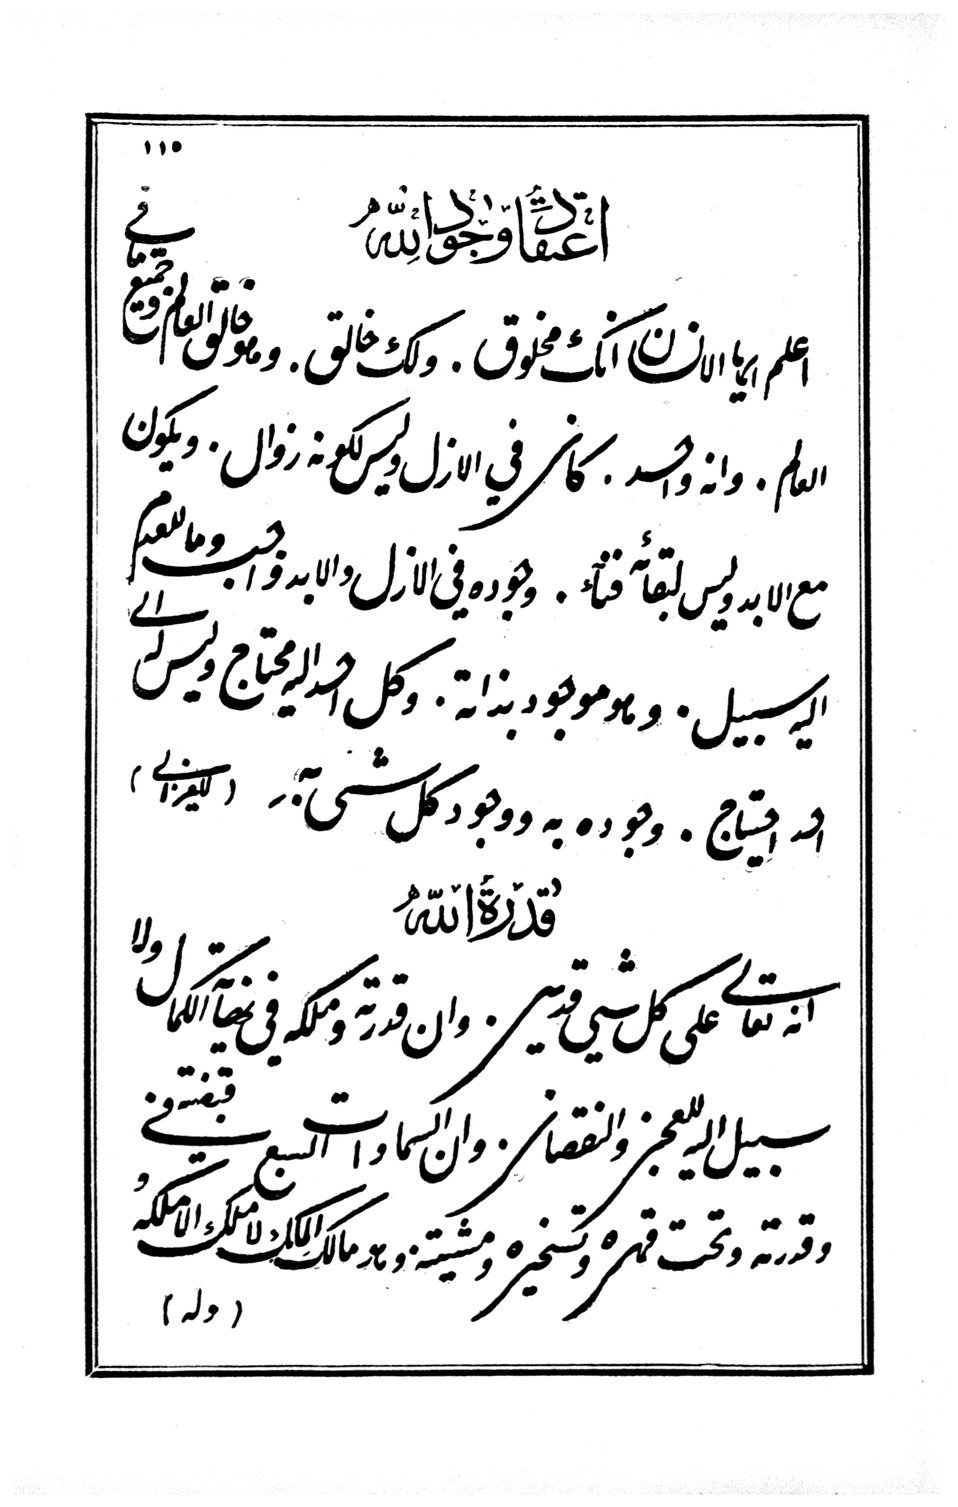 ١١٥
اعتقاد وجود الله
اعلم ايها الانسان انك مخلوق . ولك خالق . وهو خالق العالم وجميع ما في
العالم . وانه واحد . كان في الازل وليس لكونه زوال . ويكون
مع الابد وليس لبقائه فناء . وجوده في الازل والابد واجب وما للعدم
اليه سبيل . وهو موجود بذاته . وكل احد اليه محتاج وليس له الى
احد احتياج . وجوده به ووجود كل شئ به (للغزالي)
قدرة الله
انه تعالى على كل شيئ قدير . وان قدرته وملكه في نهاية الكمال ولا
سبيل اليه للعجز والنقصان . وان السماوات السبع في قبضته
وقدرته وتحت قهره وتسخيره ومشيته . وهو مالك الملك لا ملك الا ملكه و
(وله)